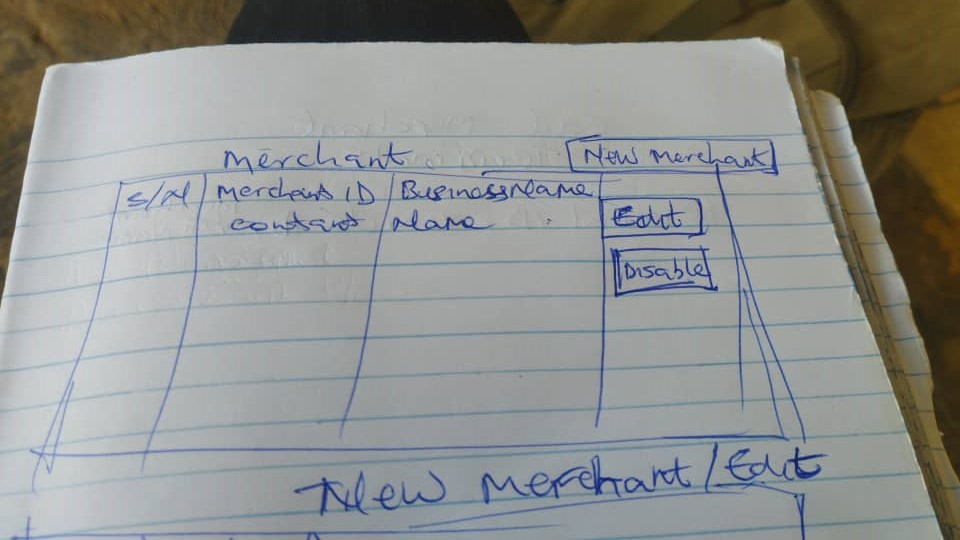 Merchant
New Merchant
S/N Merchant ID BusinessName
constant Name
Edit
Disable
New Merchant/Edit